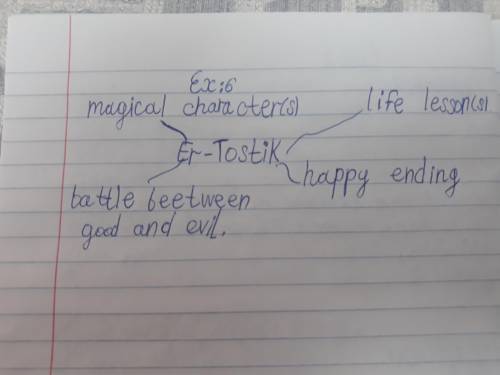 Ex:6
magical character(s)
life lesson(s)
Er-Tostik
happy ending
battle beetween
good and evil.